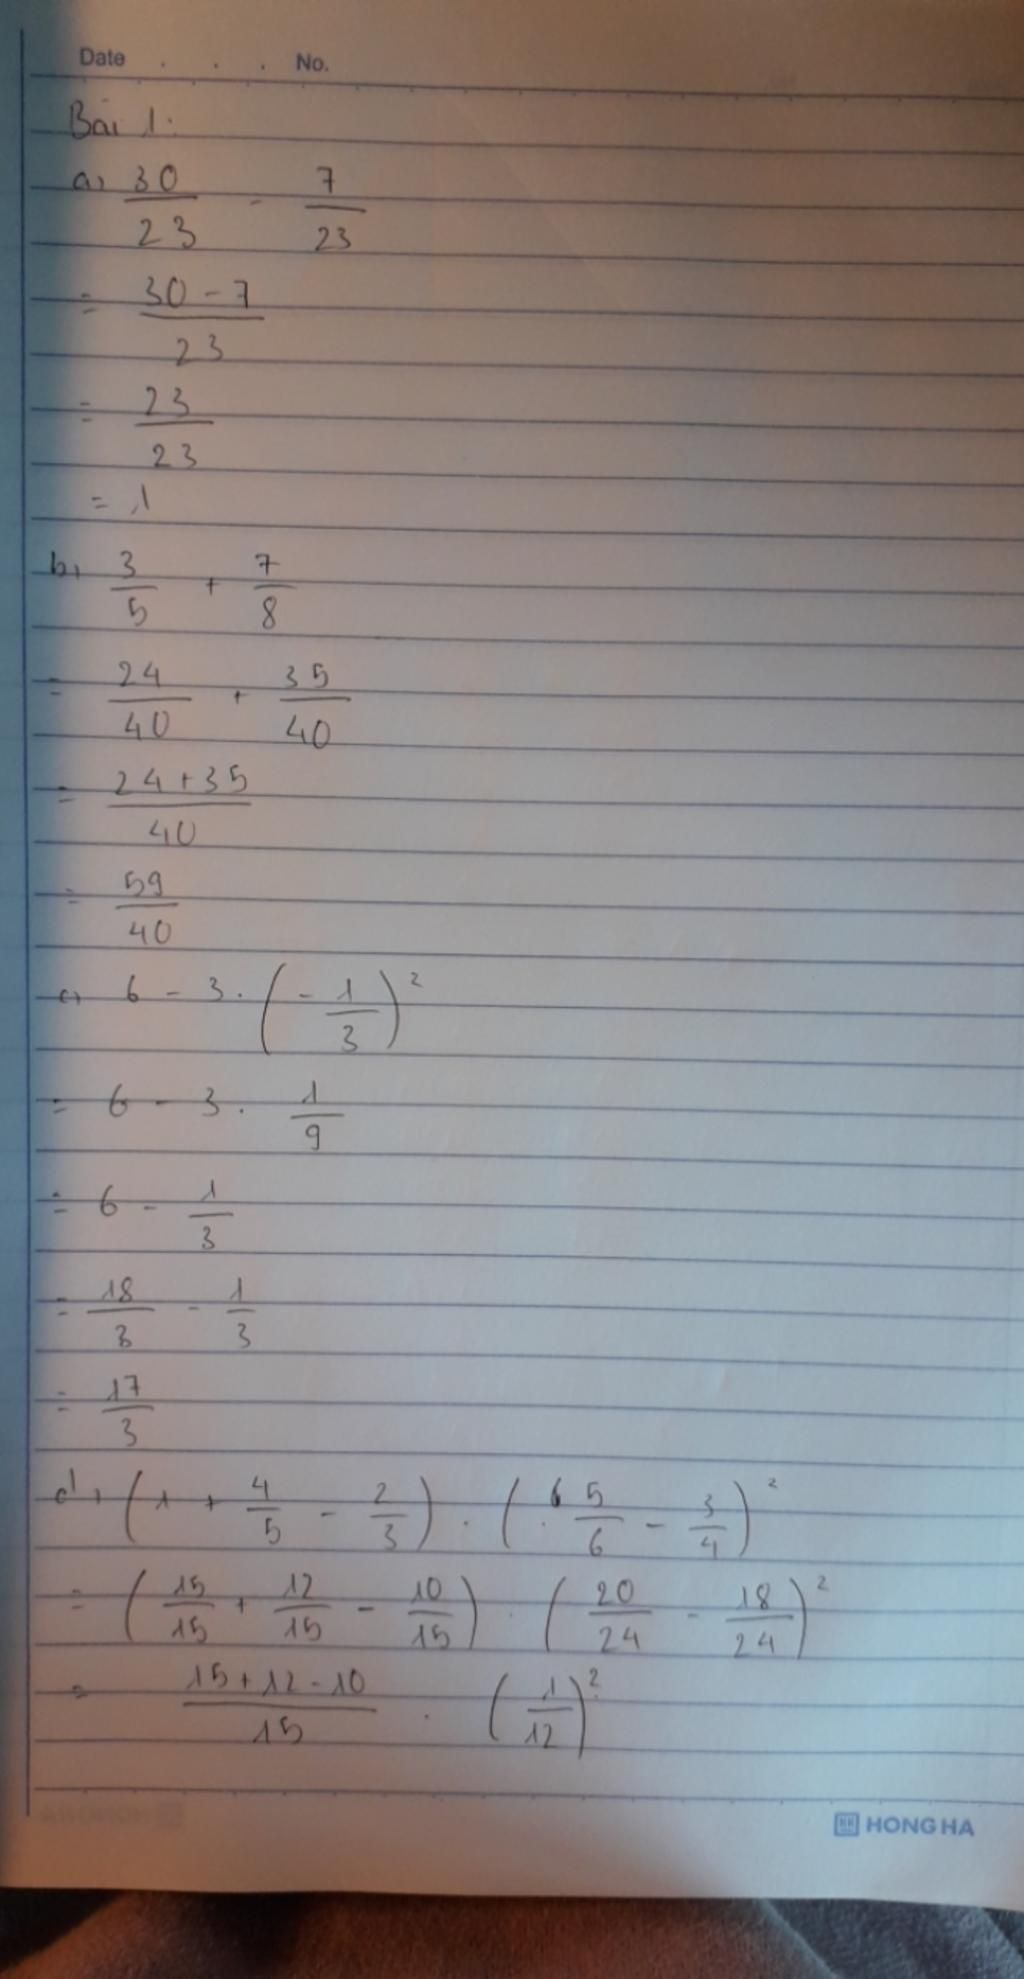 Date . . . No.
Bài 1:
a, 30/23 - 7/23
= (30 - 7)/23
= 23/23
= 1
b, 3/5 + 7/8
= 24/40 + 35/40
= (24 + 35)/40
= 59/40
c, 6 - 3 . (-1/3)²
= 6 - 3 . 1/9
= 6 - 1/3
= 18/3 - 1/3
= 17/3
d, (1 + 4/5 - 2/3) . (5/6 - 3/4)²
= (15/15 + 12/15 - 10/15) . (20/24 - 18/24)²
= (15 + 12 - 10)/15 . (1/12)²
HONG HA